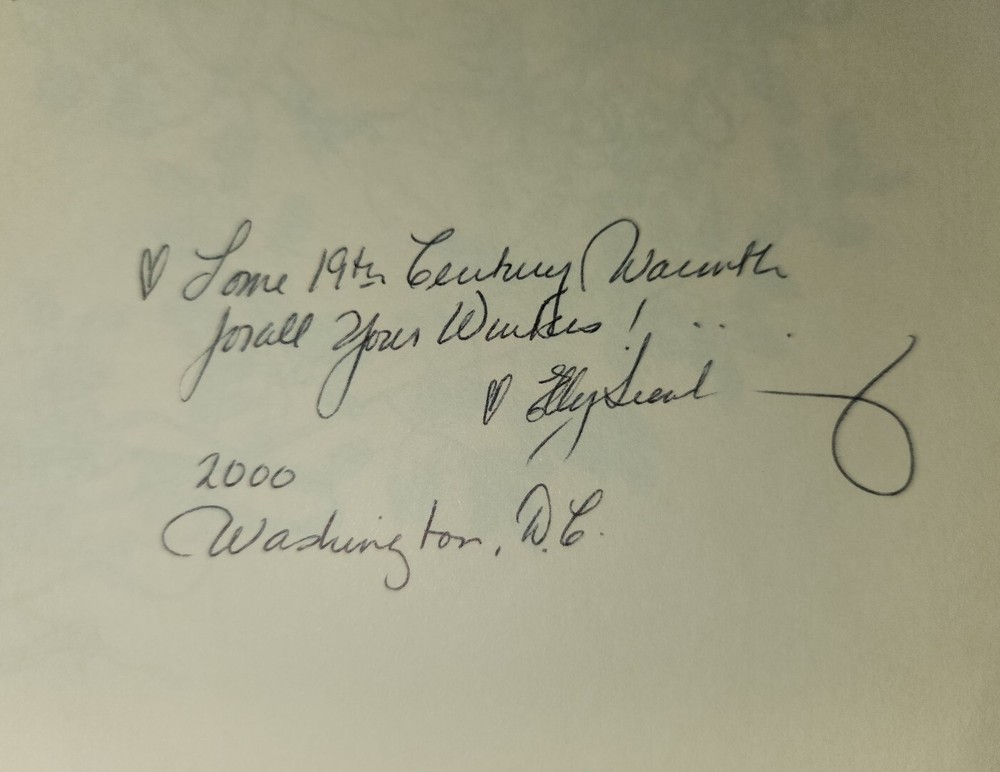 ♡ Some 19th Century Warmth
for all Your Winters! ...
♡ Elly Sienk
2000
Washington, D.C.